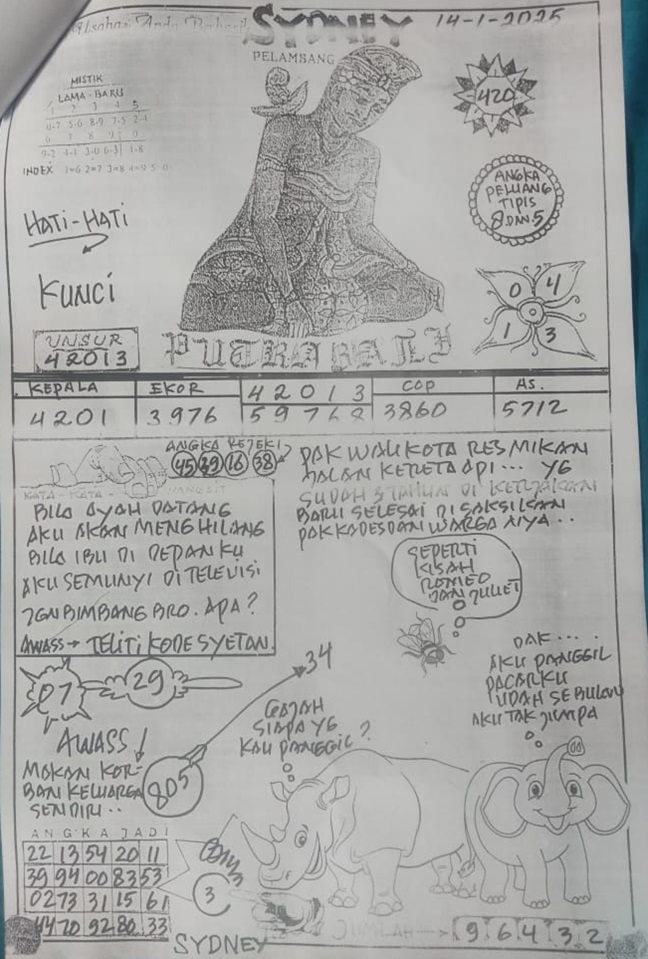 SYDNEY 14-1-2025
PELAMBANG
MISTIK
LAMA - BARU
1 2 3 4 5
0-7 5-6 8-9 7-5 2-1
INDEX 1=6 2=7 3=8 4=9 5=0
420
ANGKA
PELUANG
TIPIS
8 DAN 5
HATI-HATI
KUNCI
0 4
1 3
UNSUR
42013
PUTRA BALI
KEPALA EKOR 42013 COP AS.
4201 3976 59768 3860 5712
ANGKA REJEKI
45 39 16 38
PAK WALIKOTA RESMIKAN
JALAN KERETA API... YG
SUDAH 3 TAHUN DI KERJAKAN
BARU SELESAI DI SAKSIKAN
PAK KADES DAN WARGA NYA..
KATA - KATA -
BILA AYAH DATANG
AKU AKAN MENGHILANG
BILA IBU DI DEPAN KU
AKU SEMUNYI DI TELEVISI
JGN BIMBANG BRO. APA?
AWASS → TELITI KODE SYETAN.
SEPERTI
KISAH
ROMEO
DAN JULIET
07 29
34
PAK...
AKU PANGGIL
PACARKU
UDAH SEBULAN
AKU TAK JUMPA
GAJAH
SIAPA YG
KAU PANGGIL?
AWASS!
MAKAN KOR-
BAN KELUARGA
SENDIRI..
805
ANGKA JADI
22 13 54 20 11
39 94 00 83 53
02 73 31 15 61
44 70 92 80 33
3
JUMLAH → 9 6 4 3 2
SYDNEY